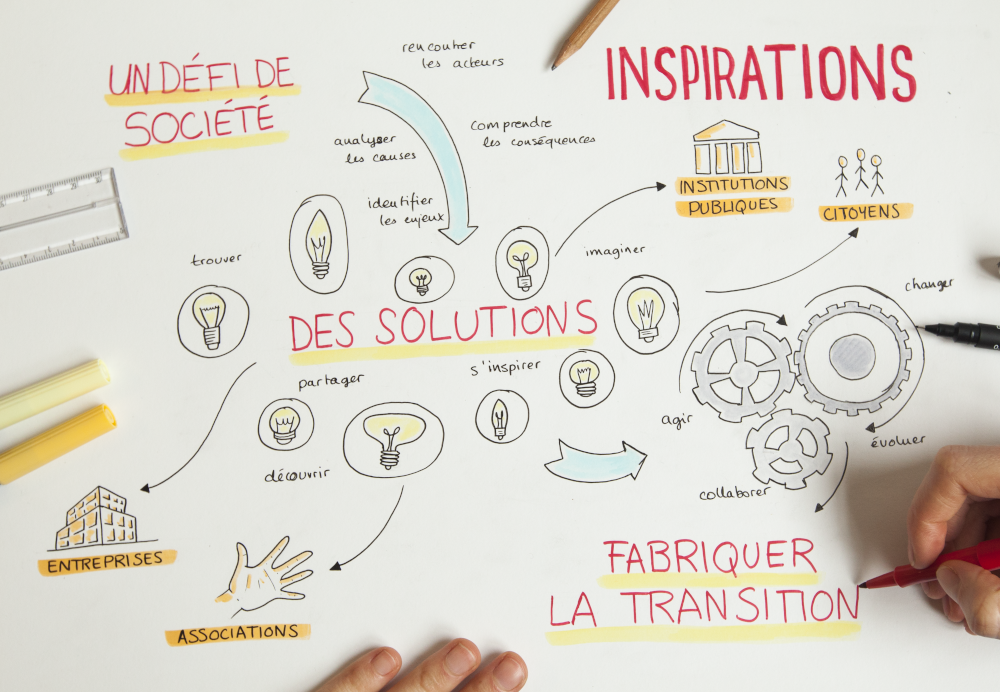 UN DÉFI DE
SOCIÉTÉ
rencontrer
les acteurs
INSPIRATIONS
analyser
les causes
comprendre
les conséquences
identifier
les enjeux
INSTITUTIONS
PUBLIQUES
CITOYENS
trouver
imaginer
changer
DES SOLUTIONS
partager
s'inspirer
agir
évoluer
découvrir
collaborer
ENTREPRISES
ASSOCIATIONS
FABRIQUER
LA TRANSITION